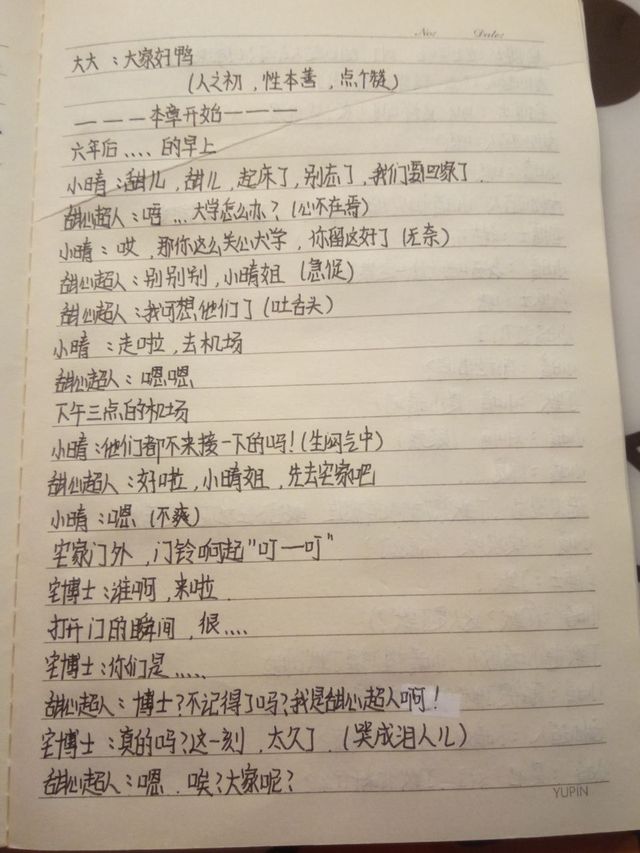 No:
Date:
大大：大家好鸭
（人之初，性本善，点个赞）
———本章开始———
六年后....的早上
小晴：甜儿，甜儿，起床了，别忘了，我们要回家了.
甜心超人：唔...大学怎么办？（心不在焉）
小晴：哎，那你这么关心大学，你留这好了（无奈）
甜心超人：别别别，小晴姐（急促）
甜心超人：我可想他们了（吐舌头）
小晴：走啦，去机场
甜心超人：嗯嗯
下午三点的机场
小晴：他们都不来接一下的吗！（生闷气中）
甜心超人：好啦，小晴姐，先去宅家吧
小晴：嗯（不爽）
宅家门外，门铃响起“叮一叮”
宅博士：谁啊，来啦.
打开门的瞬间，很....
宅博士：你们是.....
甜心超人：博士？不记得了吗？我是甜心超人啊！
宅博士：真的吗？这一刻，太久了.（哭成泪人儿）
甜心超人：嗯.唉？大家呢？
YUPIN